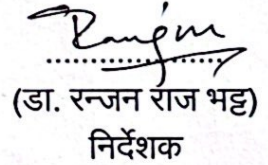 Ranjan
........................
(डा. रन्जन राज भट्ट)
निर्देशक